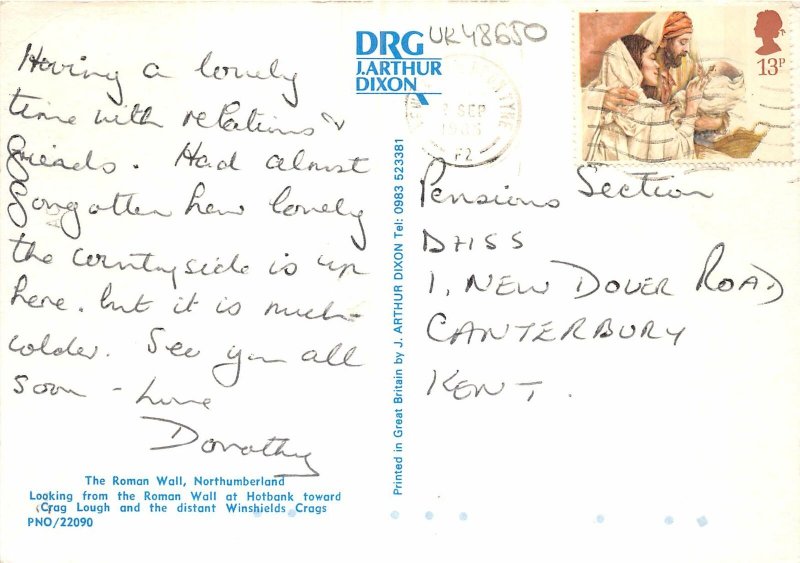 DRG
J. ARTHUR
DIXON
UK48650
13P
SEP
Having a lovely
time with relations &
friends. Had almost
forgotten how lovely
the countryside is up
here. but it is much
colder. See you all
soon - Love
Dorothy
The Roman Wall, Northumberland
Looking from the Roman Wall at Hotbank toward
Crag Lough and the distant Winshields Crags
PNO/22090
Printed in Great Britain by J. ARTHUR DIXON Tel: 0983 523381
Pensions Section
DHSS
1, NEW DOVER ROAD
CANTERBURY
KENT.